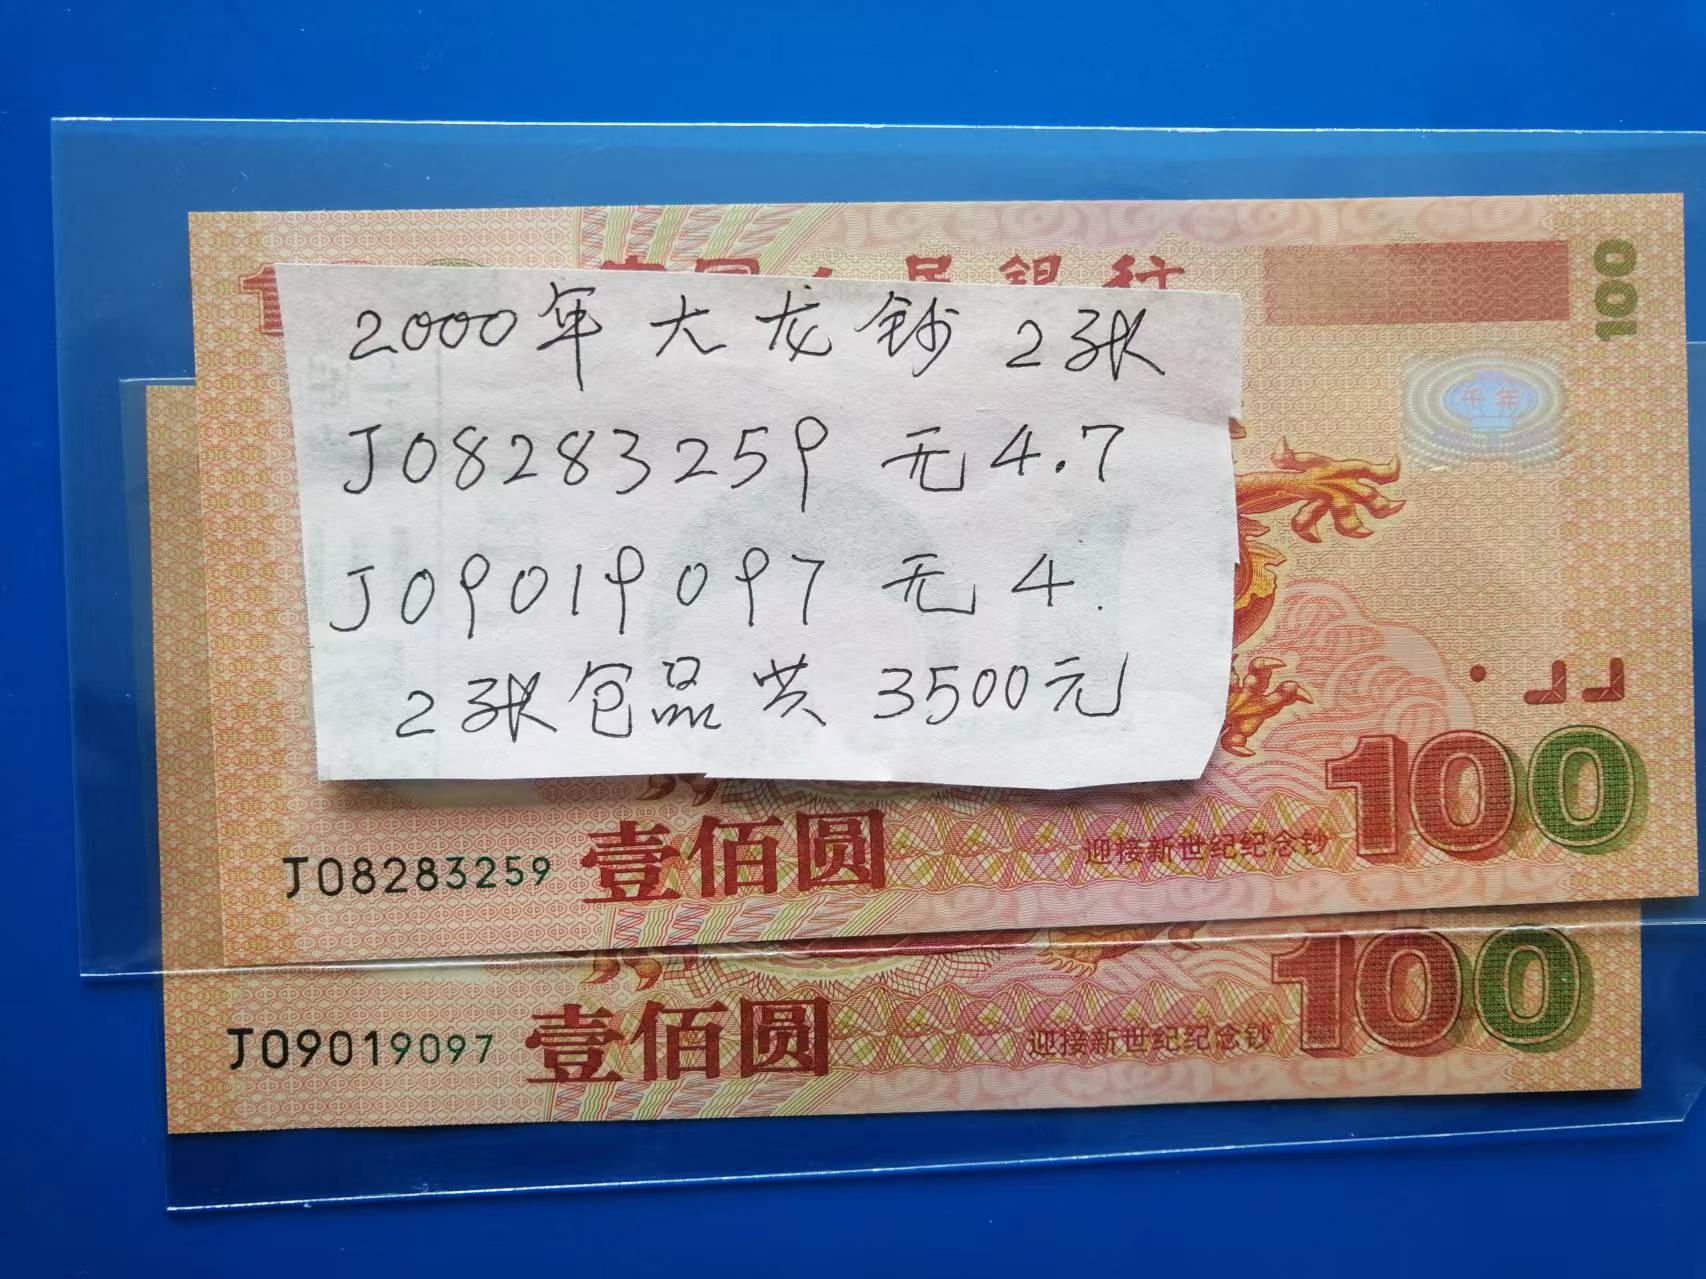 100
2000年大龙钞 2张
J08283259 无4.7
J09019097 无4.
2张包品共 3500元
千年
J08283259 壹佰圆 迎接新世纪纪念钞 100
J09019097 壹佰圆 迎接新世纪纪念钞 100